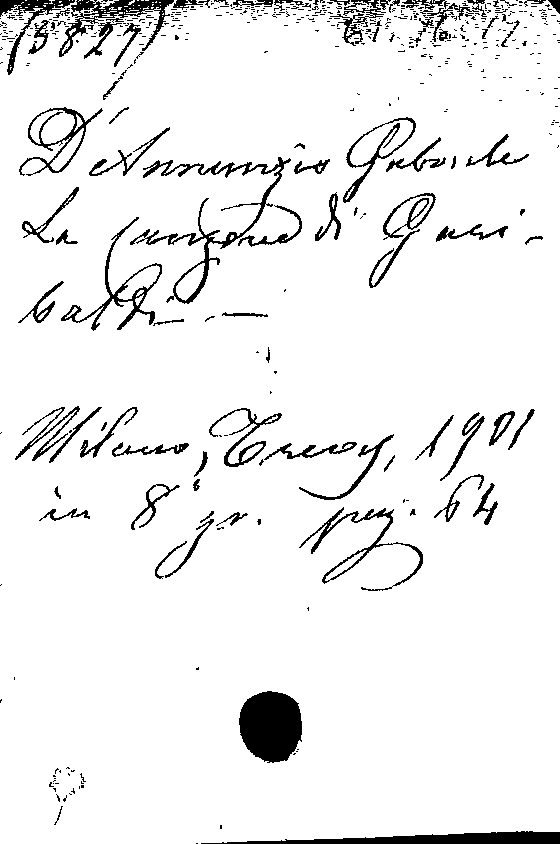 (3827). 61. 16. 17.
D'Annunzio Gabriele
La canzone di Gari-
baldi. —
Milano, Treves, 1901
in 8° gr. pag. 64